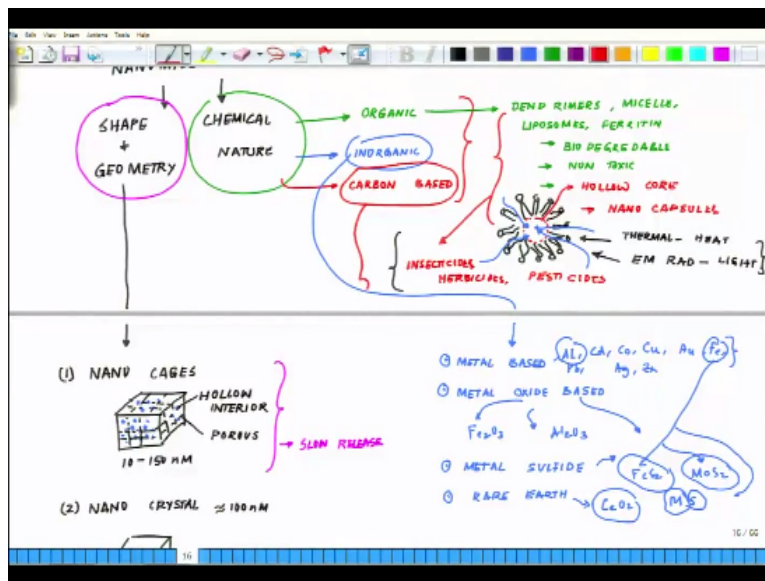 File Edit View Insert Actions Tools Help
SHAPE
+
GEOMETRY
CHEMICAL
NATURE
ORGANIC
INORGANIC
CARBON BASED
DENDRIMERS, MICELLE,
LIPOSOMES, FERRITIN
BIO DEGREDABLE
NON TOXIC
HOLLOW CORE
NANO CAPSULES
THERMAL - HEAT
EM RAD - LIGHT
INSECTICIDES
HERBICIDES, PESTICIDES
(1) NANO CAGES
HOLLOW
INTERIOR
POROUS
10-150 nM
SLOW RELEASE
(2) NANO CRYSTAL ≈ 100 nM
METAL BASED Al, Cd, Co, Cu, Au Fe
Pb, Ag, Zn
METAL OXIDE BASED
Fe2O3 Al2O3
METAL SULFIDE FeS2 MoS2
RARE EARTH CeO2 MS
16
16 / 66